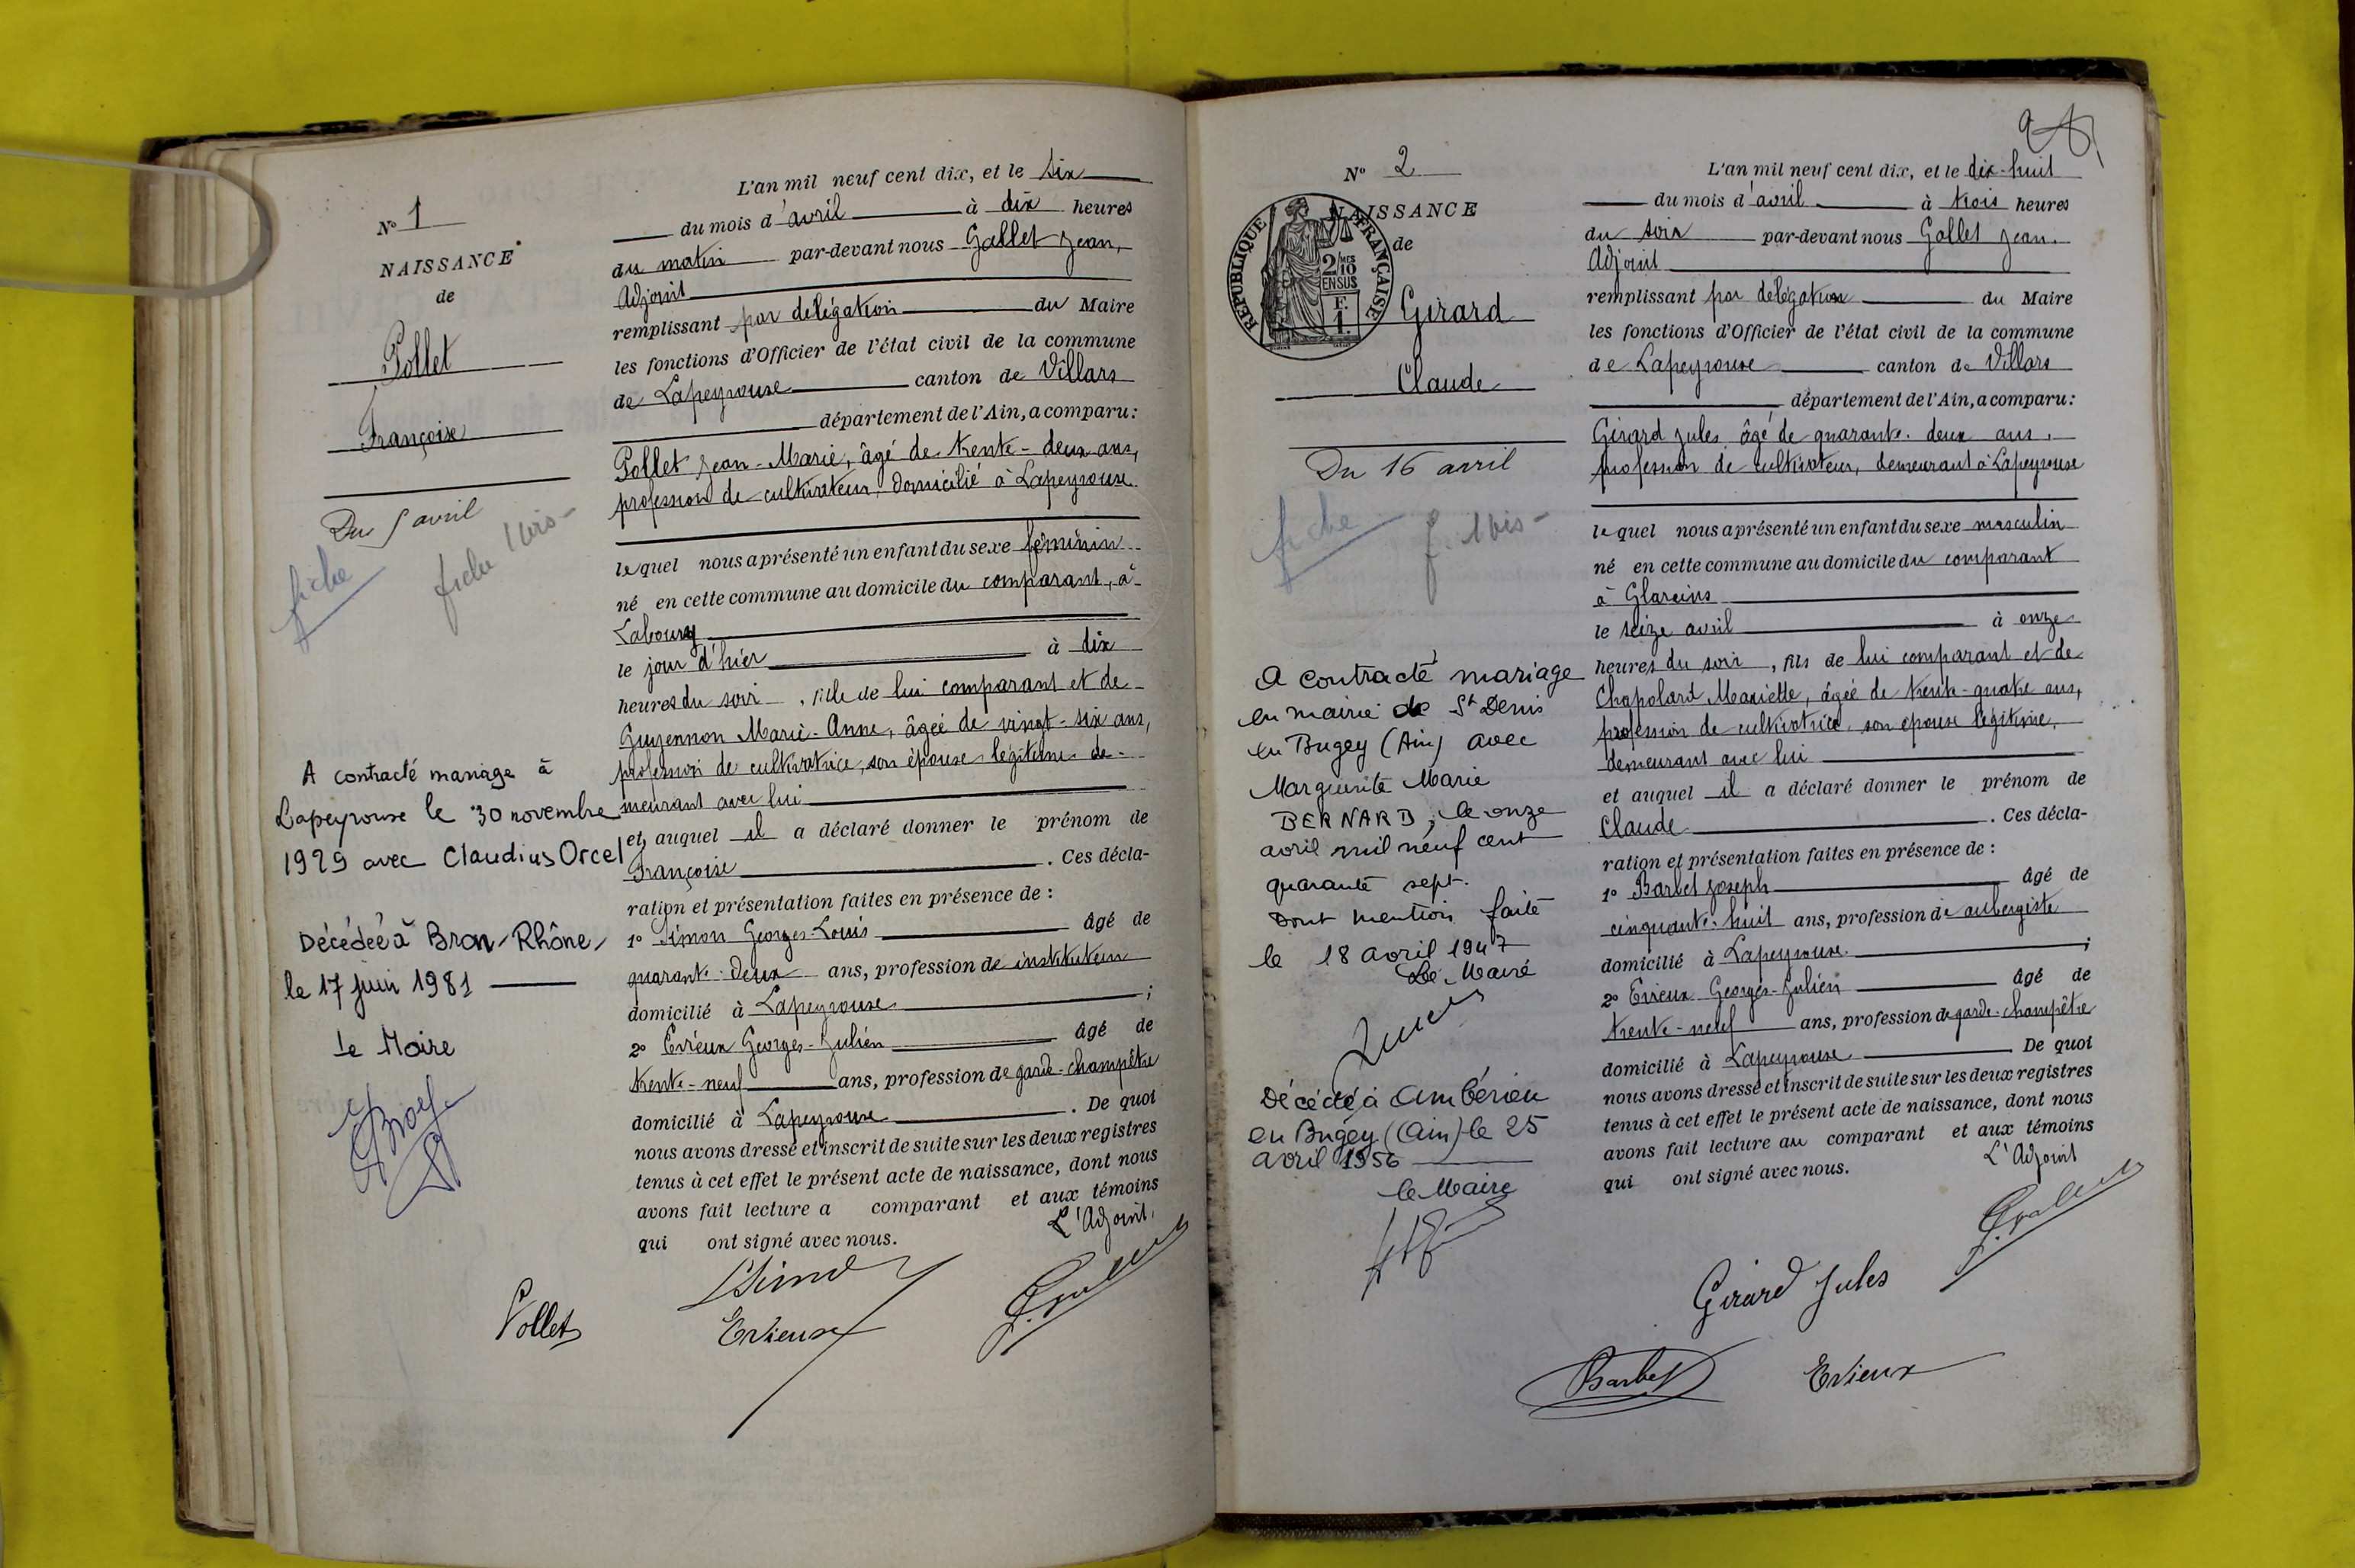 N° 1
NAISSANCE
de
Pollet
Françoise
Du 5 avril
fiche
fiche 1 bis -
A contracté mariage à
Lapeyrouse le 30 novembre
1929 avec Claudius Orcel
Décédée à Bron-Rhône,
le 17 juin 1981
Le Maire
L'an mil neuf cent dix, et le six
du mois d'avril à dix heures
du matin par-devant nous Gallet Jean,
Adjoint
remplissant par délégation du Maire
les fonctions d'Officier de l'état civil de la commune
de Lapeyrouse canton de Villars
département de l'Ain, a comparu:
Pollet Jean-Marie, âgé de trente-deux ans,
profession de cultivateur, domicilié à Lapeyrouse
lequel nous a présenté un enfant du sexe féminin
né en cette commune au domicile du comparant, à
Laboury
le jour d'hier à dix
heures du soir, fille de lui comparant et de
Guyennon Marie-Anne, âgée de vingt-six ans,
profession de cultivatrice, son épouse légitime de-
meurant avec lui
et auquel il a déclaré donner le prénom de
Françoise. Ces décla-
ration et présentation faites en présence de :
1° Simon Georges-Louis âgé de
quarante-deux ans, profession de instituteur
domicilié à Lapeyrouse ;
2° Evieux Georges-Julien âgé de
trente-neuf ans, profession de garde-champêtre
domicilié à Lapeyrouse. De quoi
nous avons dressé et inscrit de suite sur les deux registres
tenus à cet effet le présent acte de naissance, dont nous
avons fait lecture a comparant et aux témoins
qui ont signé avec nous.
L'Adjoint,
Simon
Pollet
Evieux
N° 2
NAISSANCE
de
RÉPUBLIQUE FRANÇAISE
2/10
EN SUS
F.
1.
Girard
Claude
Du 16 avril
fiche
f. 1 bis -
A contracté mariage
en mairie de St Denis
en Bugey (Ain) avec
Marguerite Marie
BERNARD, le onze
avril mil neuf cent
quarante sept.
Dont mention faite
le 18 avril 1947
Le Maire
Décédé à Ambérieu
en Bugey (Ain) le 25
avril 1956
le Maire
L'an mil neuf cent dix, et le dix-huit
du mois d'avril à trois heures
du soir par-devant nous Gallet Jean.
Adjoint
remplissant par délégation du Maire
les fonctions d'Officier de l'état civil de la commune
de Lapeyrouse canton de Villars
département de l'Ain, a comparu:
Girard Jules âgé de quarante-deux ans,
profession de cultivateur, demeurant à Lapeyrouse
lequel nous a présenté un enfant du sexe masculin
né en cette commune au domicile du comparant
à Glareins
le seize avril à onze
heures du soir, fils de lui comparant et de
Chapolard Mariette, âgée de trente-quatre ans,
profession de cultivatrice son épouse légitime,
demeurant avec lui
et auquel il a déclaré donner le prénom de
Claude. Ces décla-
ration et présentation faites en présence de :
1° Barbet Joseph âgé de
cinquante-huit ans, profession de aubergiste
domicilié à Lapeyrouse ;
2° Evieux Georges-Julien âgé de
trente-neuf ans, profession de garde-champêtre
domicilié à Lapeyrouse. De quoi
nous avons dressé et inscrit de suite sur les deux registres
tenus à cet effet le présent acte de naissance, dont nous
avons fait lecture au comparant et aux témoins
qui ont signé avec nous.
L'Adjoint
Girard Jules
Barbet
Evieux